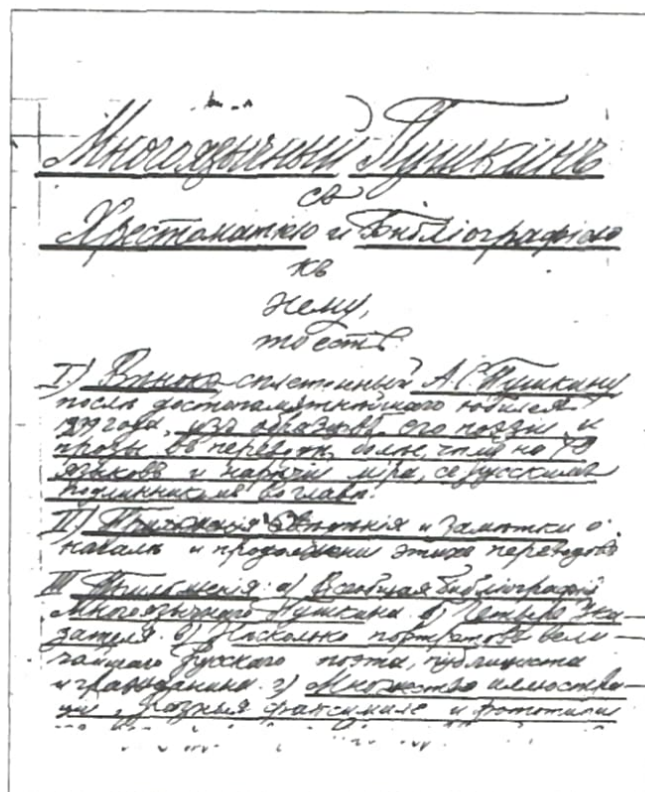 Многоязычный Пушкинъ
съ
Хрестоматіею и Библіографіею
къ
нему,
то есть
I) Вѣнокъ сплетенный А. С. Пушкину
послѣ достопамятнѣйшаго юбилея
года, изъ образцовъ его поэзіи и
прозы въ переводѣ болѣе, чѣмъ на 70
языковъ и нарѣчій міра, съ русскимъ
подлинникомъ во главѣ.
II) свѣдѣнія и замѣтки о
началѣ и продолженіи этихъ переводовъ
III а) Всеобщая библіографія
Многоязычнаго Пушкина б) Четыре Ука-
зателя в) Нѣсколько портретовъ вели-
чайшаго Русскаго поэта, публициста
и гражданина г) Множество иллюстра-
цій, разныя факсимиле и фототипіи